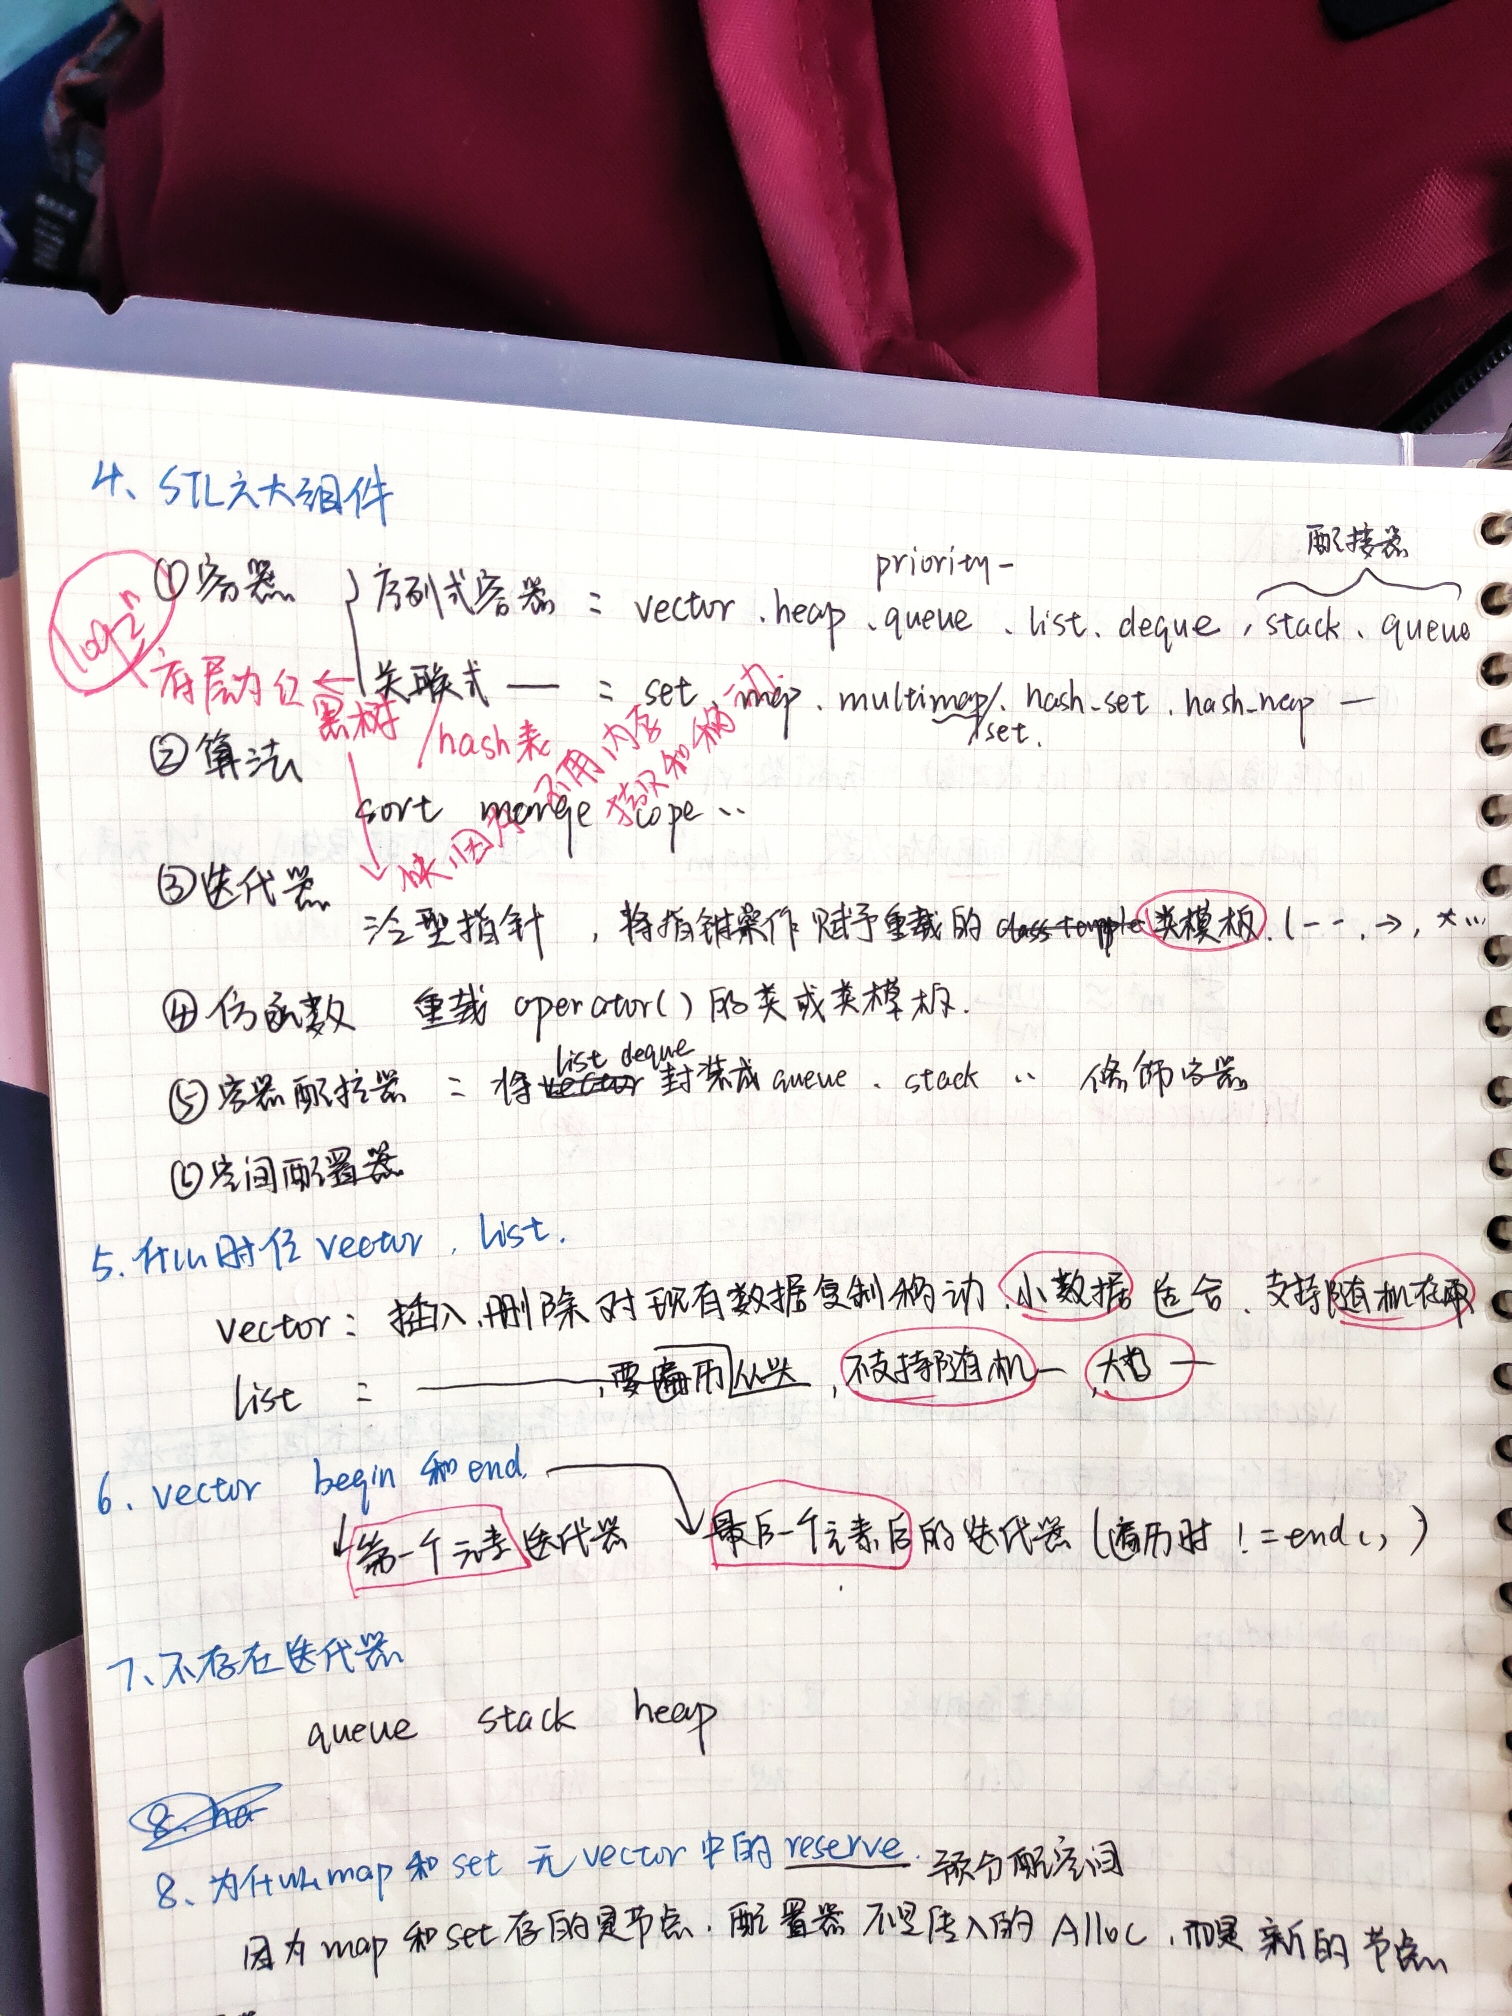 4、STL六大组件
配接器
①容器 序列式容器: vector、heap、priority-queue、list、deque、stack、queue
log2n
底层为红黑树/hash表
关联式 — : set、map、multimap/set、hash_set、hash_map —
快,因为不用内存拷贝和移动
②算法
sort merge cope ..
③迭代器
泛型指针,将指针操作赋予重载的类模板(--,→,*...
④仿函数 重载 operator()的类或类模板.
⑤容器配接器: 将list deque封装成queue、stack .. 修饰容器
⑥空间配置器
5.什么时候 vector、list.
vector: 插入、删除对现有数据复制移动、小数据适合、支持随机存取
list : ———,要遍历从头,不支持随机—,大数—
6、vector begin 和 end.
第一个元素迭代器 最后一个元素后的迭代器(遍历时 != end())
7、不存在迭代器
queue stack heap
8、为什么map和set无vector中的reserve. 预分配空间
因为map和set存的是节点.配置器不是传入的Alloc,而是新的节点